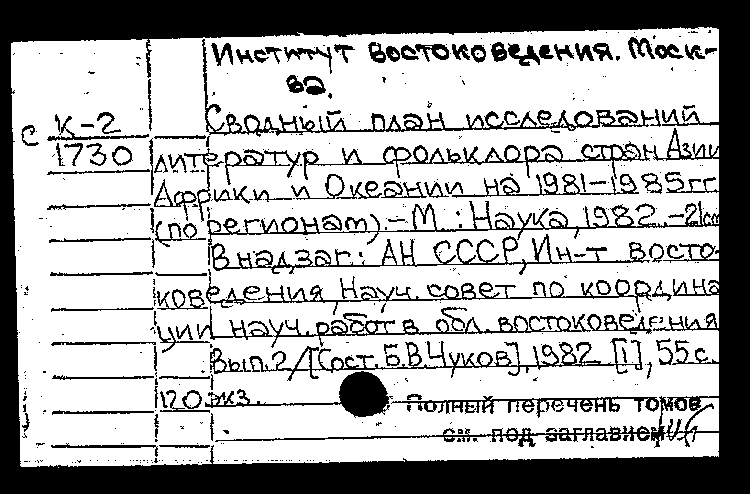 Институт востоковедения. Моск-
ва.
с К-2 Сводный план исследований
1730 литератур и фольклора стран Азии
Африки и Океании на 1981-1985 гг.
(по регионам).-М.: Наука, 1982.-21 см
В надзаг.: АН СССР, Ин-т восто-
коведения, Науч. совет по координа
ции науч. работ в обл. востоковедения
Вып. 2/[Сост. Б.В. Чуков], 1982. [1], 55 с.
120 экз.
Полный перечень томов
см. под заглавием